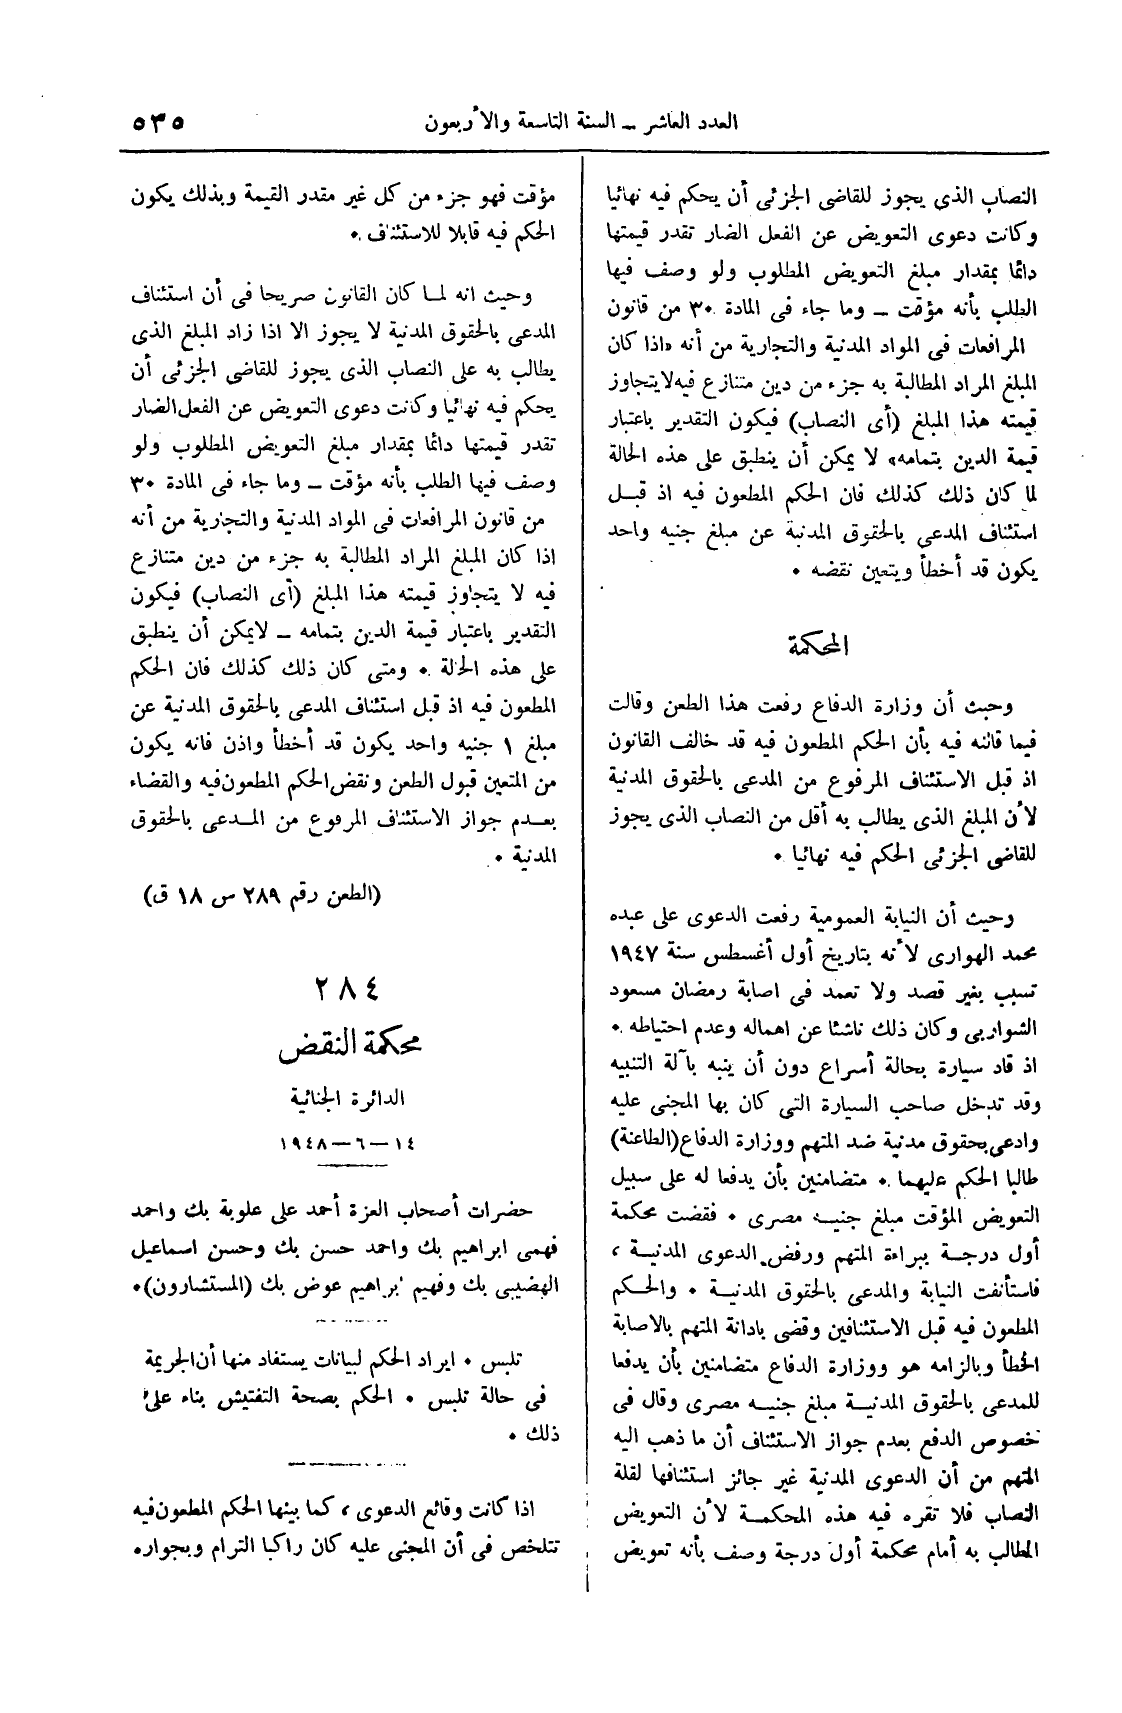 العدد العاشر – السنة التاسعة والأربعون
٥٣٥
النصاب الذى يجوز للقاضى الجزئى أن يحكم فيه نهائيا
وكانت دعوى التعويض عن الفعل الضار تقدر قيمتها
دائما بمقدار مبلغ التعويض المطلوب ولو وصف فيها
الطلب بأنه مؤقت – وما جاء فى المادة ٣٠ من قانون
المرافعات فى المواد المدنية والتجارية من أنه «اذا كان
المبلغ المراد المطالبة به جزء من دين متنازع فيه لايتجاوز
قيمته هذا المبلغ (أى النصاب) فيكون التقدير باعتبار
قيمة الدين بتمامه» لا يمكن أن ينطبق على هذه الحالة
لما كان ذلك كذلك فان الحكم المطعون فيه اذ قبل
استئناف المدعى بالحقوق المدنية عن مبلغ جنيه واحد
يكون قد أخطأ ويتعين نقضه .
المحكمة
وحيث أن وزارة الدفاع رفعت هذا الطعن وقالت
فيما قالته فيه بأن الحكم المطعون فيه قد خالف القانون
اذ قبل الاستئناف المرفوع من المدعى بالحقوق المدنية
لأن المبلغ الذى يطالب به أقل من النصاب الذى يجوز
للقاضى الجزئى الحكم فيه نهائيا .
وحيث أن النيابة العمومية رفعت الدعوى على عبده
محمد الهوارى لأنه بتاريخ أول أغسطس سنة ١٩٤٧
تسبب بغير قصد ولا تعمد فى اصابة رمضان مسعود
الشواربى وكان ذلك ناشئا عن اهماله وعدم احتياطه .
اذ قاد سيارة بحالة أسراع دون أن ينبه بآلة التنبيه
وقد تدخل صاحب السيارة التى كان بها المجنى عليه
وادعى بحقوق مدنية ضد المتهم ووزارة الدفاع (الطاعنة)
طالبا الحكم عليهما . متضامنين بأن يدفعا له على سبيل
التعويض المؤقت مبلغ جنيه مصرى . فقضت محكمة
أول درجة ببراءة المتهم ورفض الدعوى المدنية ،
فاستأنفت النيابة والمدعى بالحقوق المدنية . والحكم
المطعون فيه قبل الاستئنافين وقضى بادانة المتهم بالاصابة
الخطأ وبالزامه هو ووزارة الدفاع متضامنين بأن يدفعا
للمدعى بالحقوق المدنية مبلغ جنيه مصرى وقال فى
خصوص الدفع بعدم جواز الاستئناف أن ما ذهب اليه
المتهم من أن الدعوى المدنية غير جائز استئنافها لقلة
النصاب فلا تقره فيه هذه المحكمة لأن التعويض
المطالب به أمام محكمة أول درجة وصف بأنه تعويض
مؤقت فهو جزء من كل غير مقدر القيمة وبذلك يكون
الحكم فيه قابلا للاستئناف .
وحيث انه لما كان القانون صريحا فى أن استئناف
المدعى بالحقوق المدنية لا يجوز الا اذا زاد المبلغ الذى
يطالب به على النصاب الذى يجوز للقاضى الجزئى أن
يحكم فيه نهائيا وكانت دعوى التعويض عن الفعل الضار
تقدر قيمتها دائما بمقدار مبلغ التعويض المطلوب ولو
وصف فيها الطلب بأنه مؤقت – وما جاء فى المادة ٣٠
من قانون المرافعات فى المواد المدنية والتجارية من أنه
اذا كان المبلغ المراد المطالبة به جزء من دين متنازع
فيه لا يتجاوز قيمته هذا المبلغ (أى النصاب) فيكون
التقدير باعتبار قيمة الدين بتمامه – لايمكن أن ينطبق
على هذه الحالة . ومتى كان ذلك كذلك فان الحكم
المطعون فيه اذ قبل استئناف المدعى بالحقوق المدنية عن
مبلغ ١ جنيه واحد يكون قد أخطأ واذن فانه يكون
من المتعين قبول الطعن ونقض الحكم المطعون فيه والقضاء
بعدم جواز الاستئناف المرفوع من المدعى بالحقوق
المدنية .
(الطعن رقم ٢٨٩ س ١٨ ق)
٢٨٤
محكمة النقض
الدائرة الجنائية
١٤–٦–١٩٤٨
حضرات أصحاب العزة أحمد على علوبة بك واحمد
فهمى ابراهيم بك واحمد حسن بك وحسن اسماعيل
الهضيبى بك وفهيم ابراهيم عوض بك (المستشارون).
تلبس . ايراد الحكم لبيانات يستفاد منها أن الجريمة
فى حالة تلبس . الحكم بصحة التفتيش بناء على
ذلك .
اذا كانت وقائع الدعوى ، كما بينها الحكم المطعون فيه
تتلخص فى أن المجنى عليه كان راكبا الترام وبجواره